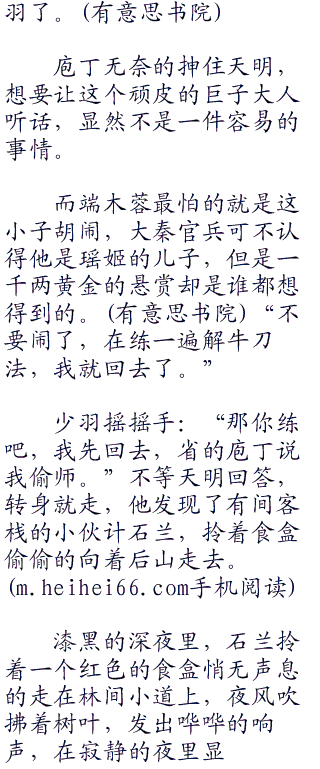 羽了。(有意思书院)
庖丁无奈的抻住天明，
想要让这个顽皮的巨子大人
听话，显然不是一件容易的
事情。
而端木蓉最怕的就是这
小子胡闹，大秦官兵可不认
得他是瑶姬的儿子，但是一
千两黄金的悬赏却是谁都想
得到的。(有意思书院)“不
要闹了，在练一遍解牛刀
法，我就回去了。”
少羽摇摇手：“那你练
吧，我先回去，省的庖丁说
我偷师。”不等天明回答，
转身就走，他发现了有间客
栈的小伙计石兰，拎着食盒
偷偷的向着后山走去。
(m.heihei66.com手机阅读)
漆黑的深夜里，石兰拎
着一个红色的食盒悄无声息
的走在林间小道上，夜风吹
拂着树叶，发出哗哗的响
声，在寂静的夜里显